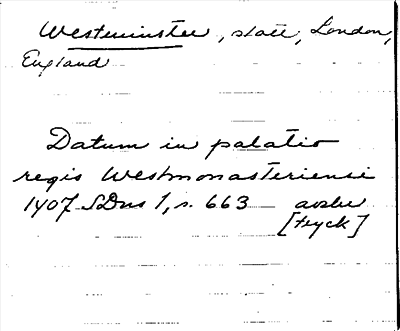 Westminster, slott, London,
England
Datum in palatio
regis Westmonasteriensi
1407 SDns 1, s. 663 avskr
[tryck]